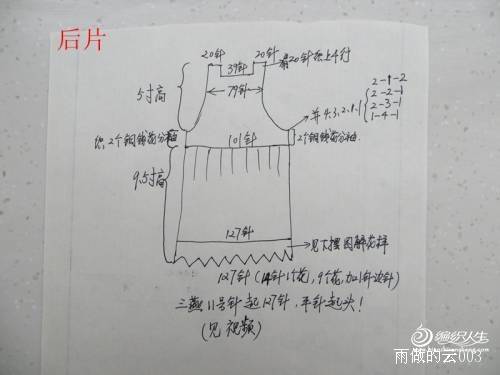 后片
20针 20针 20针织上4行
39针
5寸高
79针
并4.3.2.1.1
2-1-2
2-2-1
2-3-1
1-4-1
织2个铜钱花分袖
101针
2个铜钱花分袖
9.5寸高
127针
见下摆图解花样
127针(14针1花,9个花,加1针边针)
三燕11号针起127针,平针起头!
(见视频)
编织人生
雨做的云003